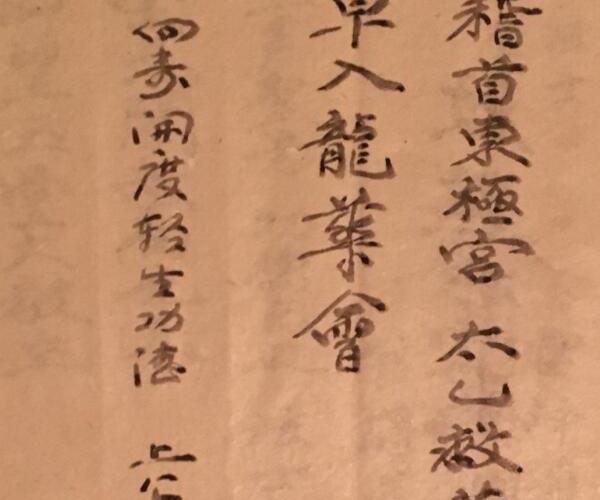 稽首東極宮 太乙救
早入龍華會
寿開度轻生功德 上